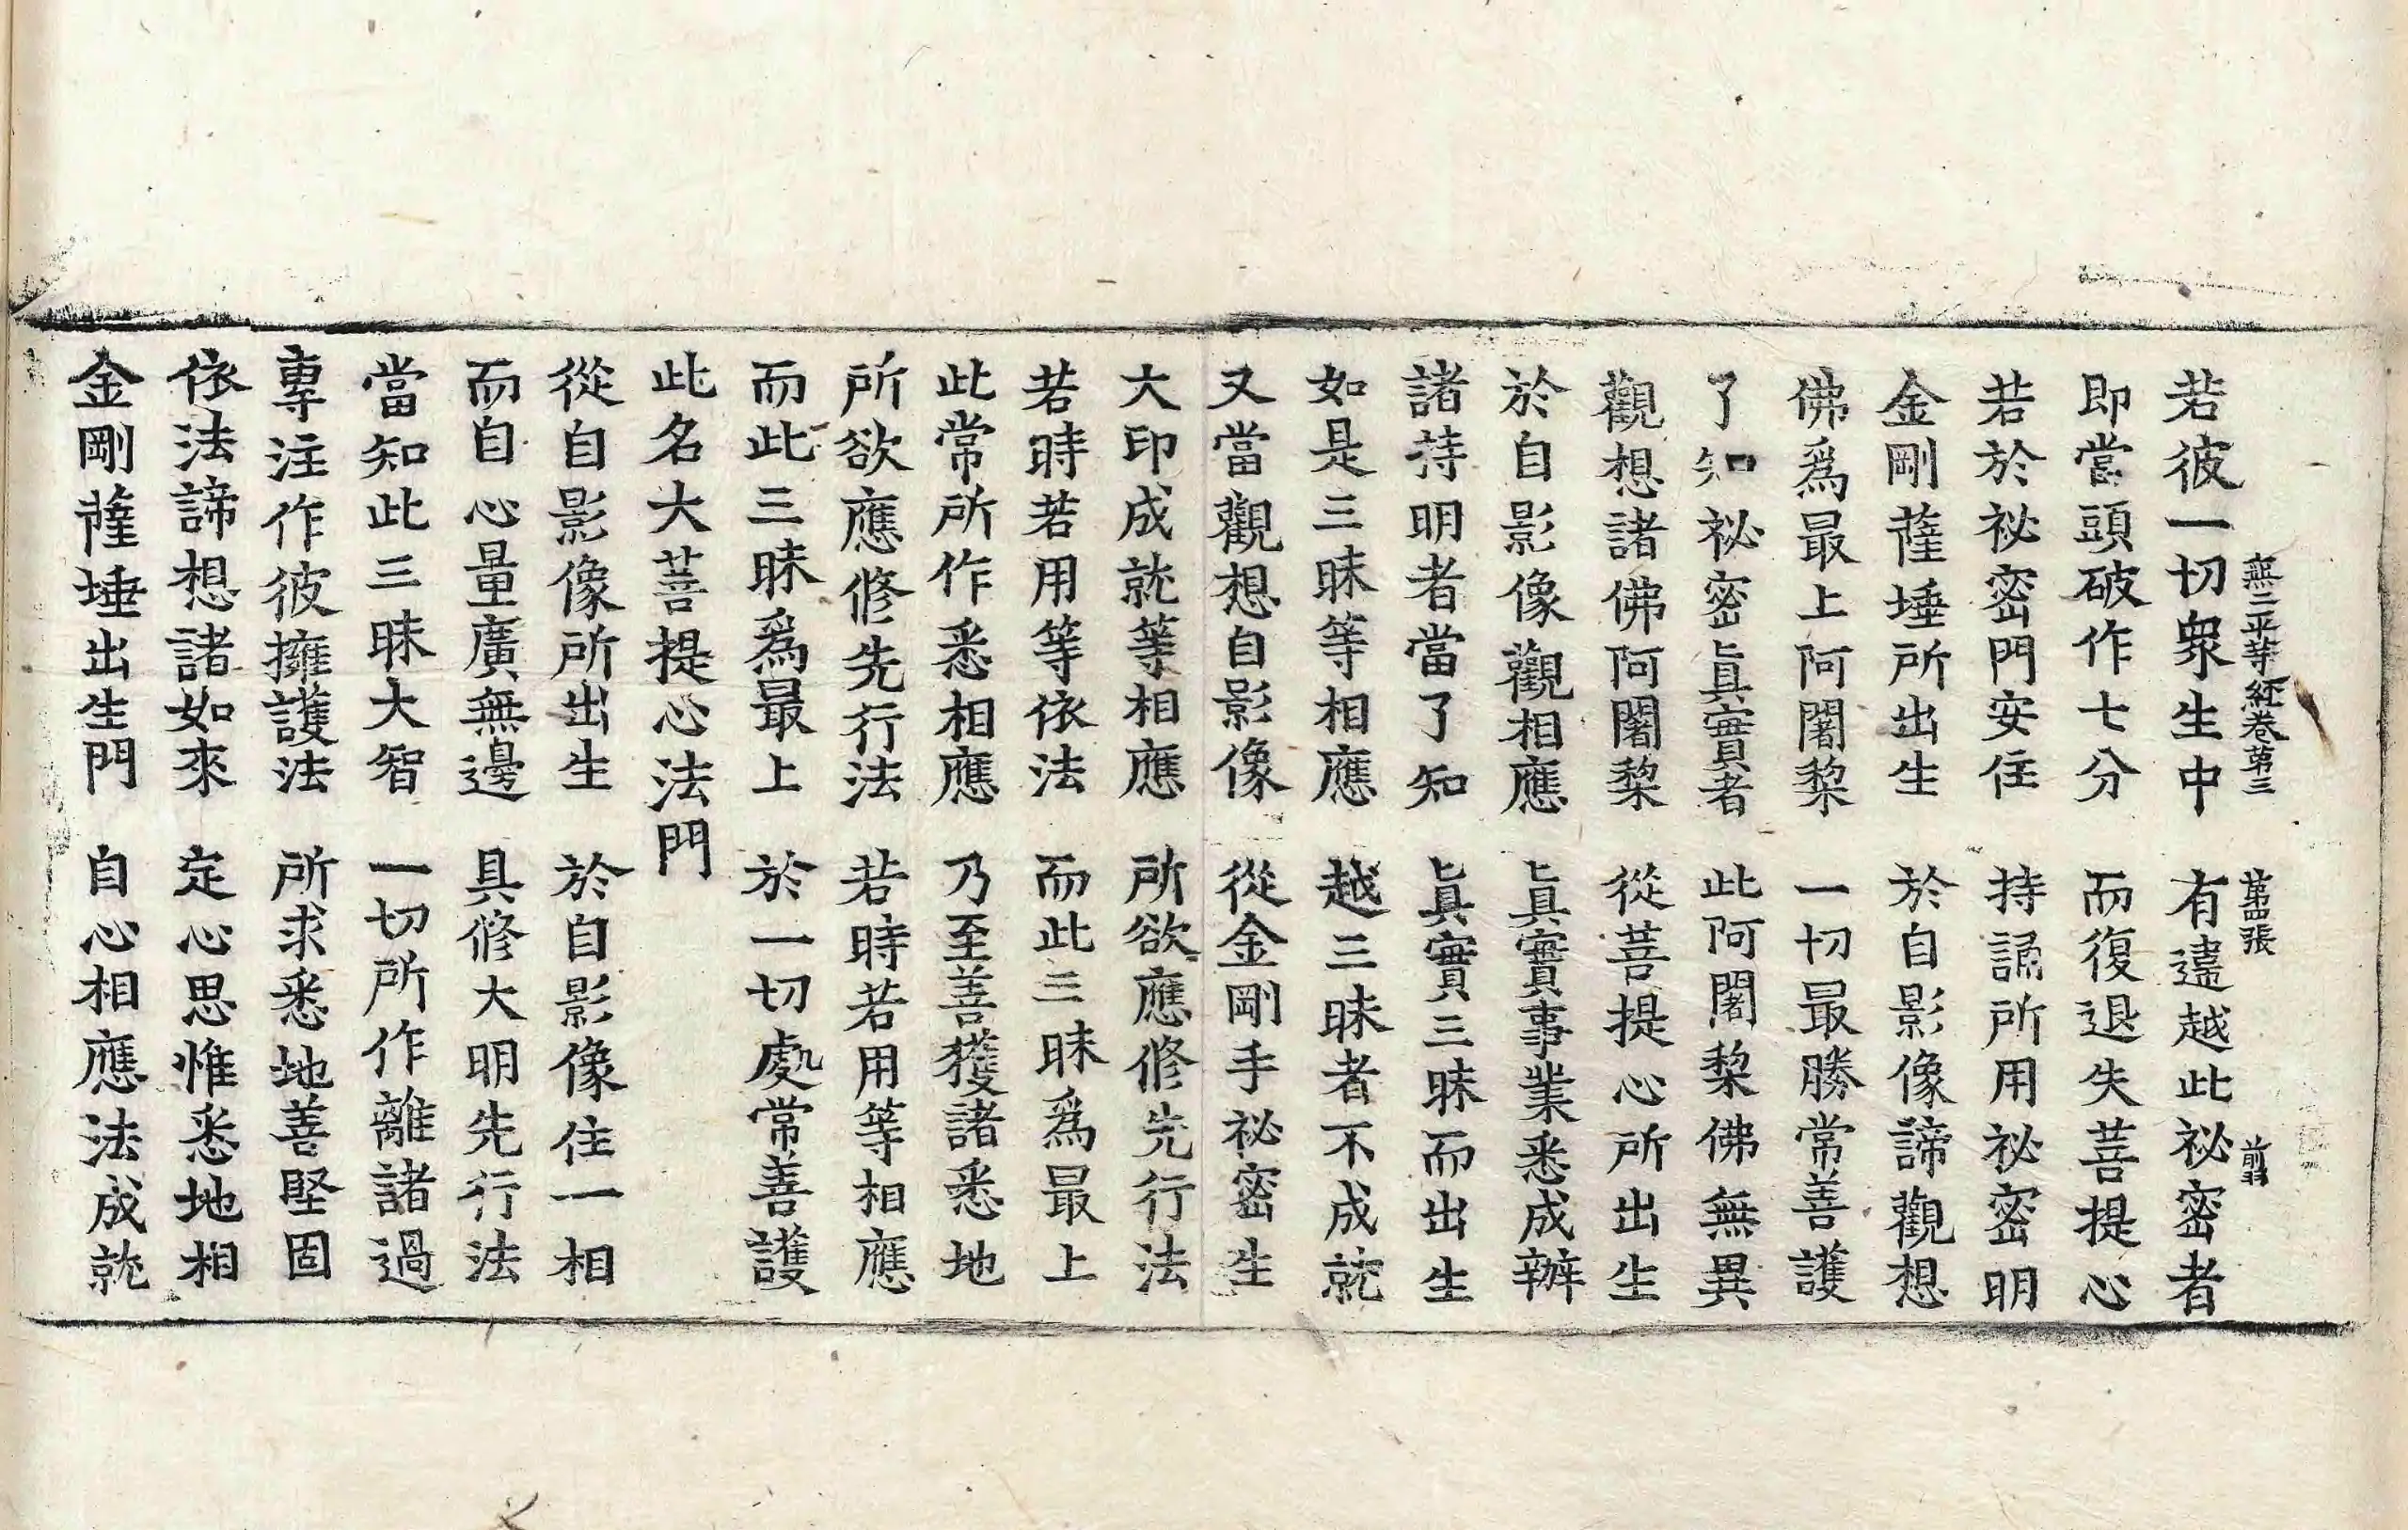 無二平等経卷第三 第四張 前羽
若彼一切衆生中 有違越此祕密者
即當頭破作七分 而復退失菩提心
若於祕密門安住 持誦所用祕密明
金剛薩埵所出生 於自影像諦觀想
佛爲最上阿闍棃 一切最勝常善護
了知祕密眞實者 此阿闍棃佛無異
觀想諸佛阿闍棃 從菩提心所出生
於自影像觀相應 眞實事業悉成辦
諸持明者當了知 眞實三昧而出生
如是三昧等相應 越三昧者不成就
又當觀想自影像 從金剛手祕密生
大印成就等相應 所欲應修先行法
若時若用等依法 而此三昧爲最上
此常所作悉相應 乃至善獲諸悉地
所欲應修先行法 若時若用等相應
而此三昧爲最上 於一切處常善護
此名大菩提心法門
從自影像所出生 於自影像住一相
而自心量廣無邊 具修大明先行法
當知此三昧大智 一切所作離諸過
專注作彼擁護法 所求悉地善堅固
依法諦想諸如來 定心思惟悉地相
金剛薩埵出生門 自心相應法成就